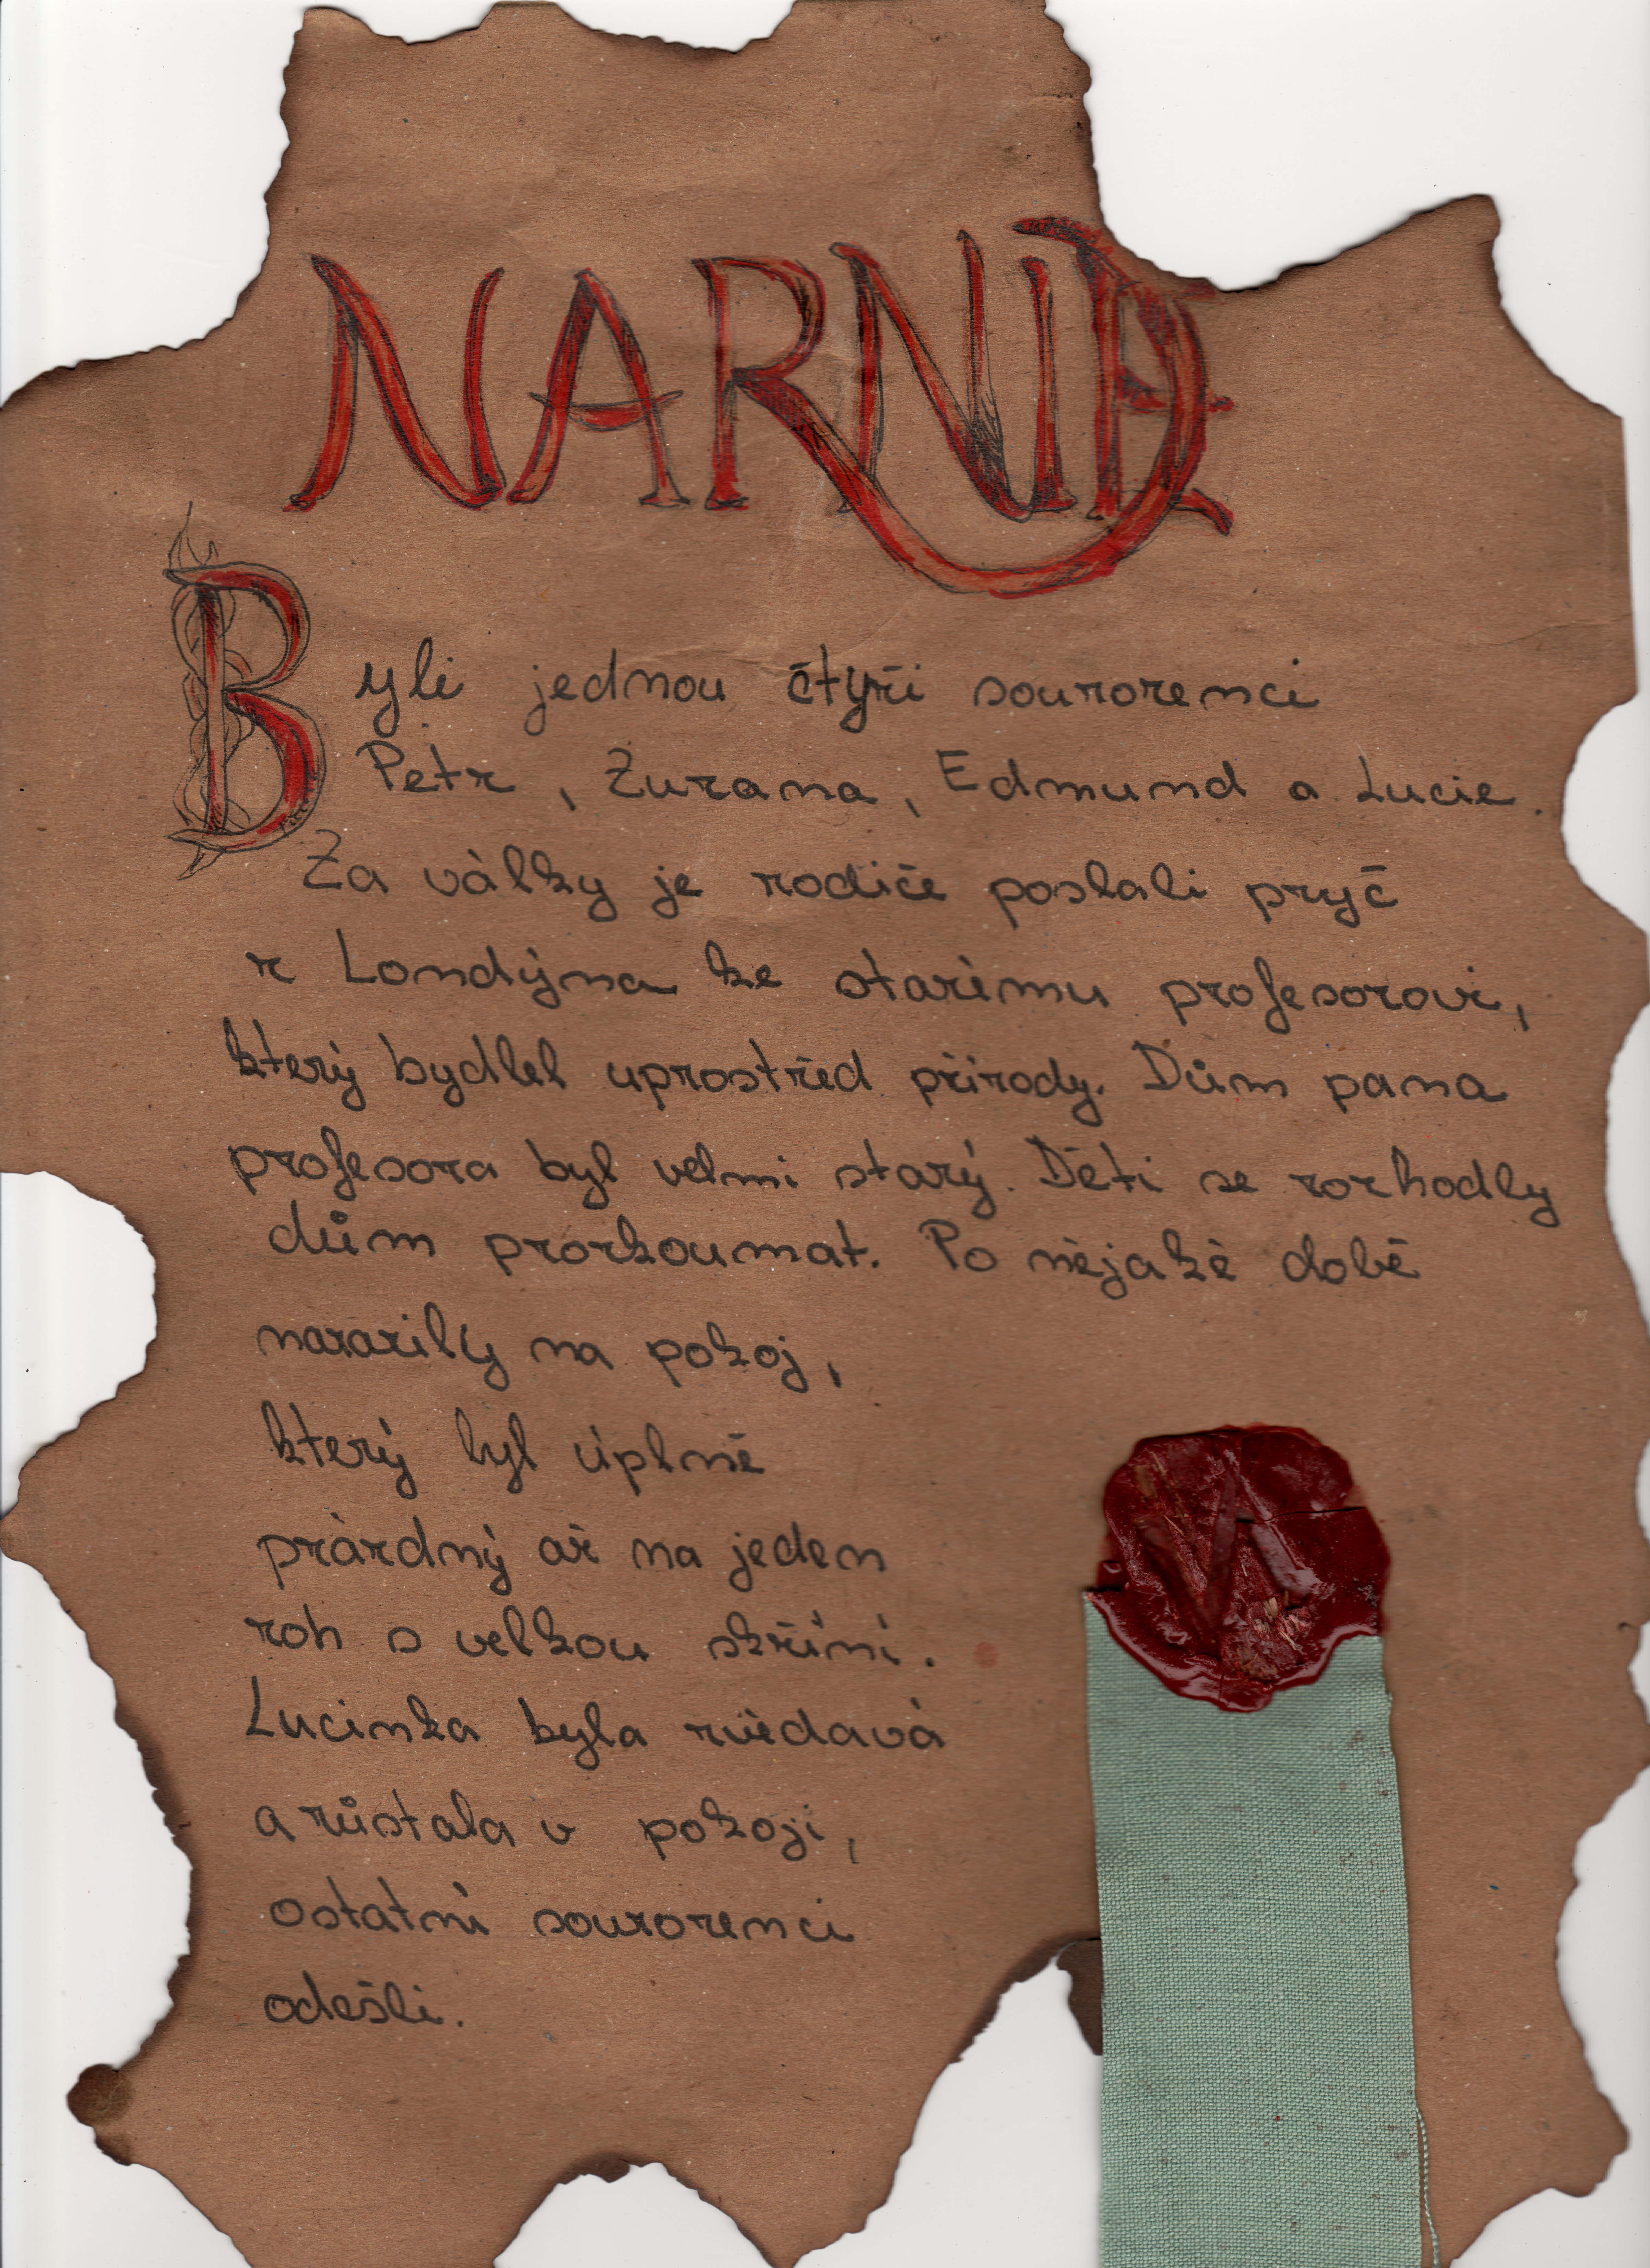 NARNIE
Byli jednou čtyři sourozenci
Petr, Zuzana, Edmund a Lucie.
Za války je rodiče poslali pryč
z Londýna ke starému profesorovi,
který bydlel uprostřed přírody. Dům pana
profesora byl velmi starý. Děti se rozhodly
dům prozkoumat. Po nějaké době
narazily na pokoj,
který byl úplně
prázdný až na jeden
roh s velkou skříní.
Lucinka byla zvědavá
a zůstala v pokoji,
ostatní sourozenci
odešli.